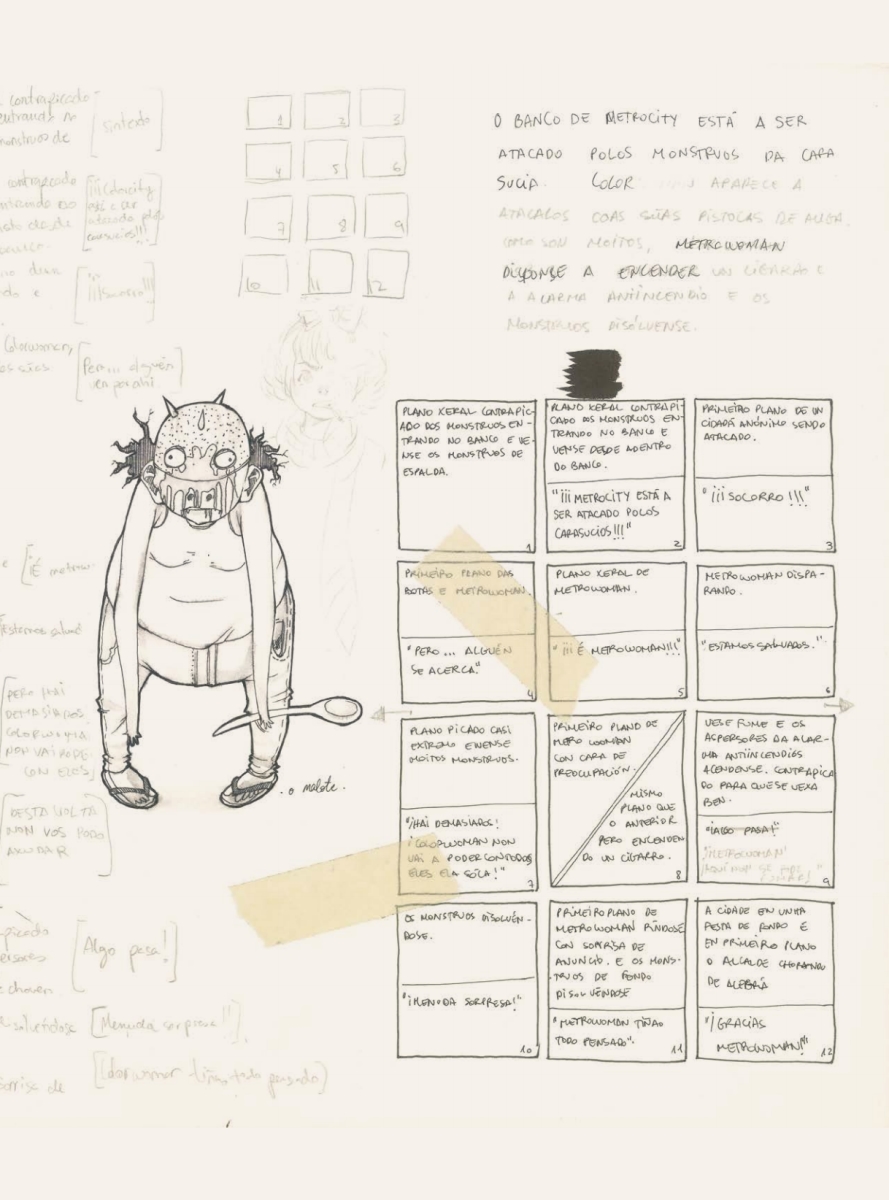 contrapicado
entrando no
monstruos de
[sintexto]
contrapicado
entrando no
[¡¡¡Colorcity
está a ser
atacado polos
carasucios!!!]
[¡¡¡Socorro!!!]
Colorwoman,
[Pero... alguén
ven por ahi.]
[¡É metrow-
[PERO ¡HAI
DEMASIADOS.
COLORWOMAN
NON VAI PODE-
CON ELES]
[DESTA VOLTA
NON VOS PODO
AXUDAR]
[Algo pasa!]
[Menuda sorpresa!!]
sorrisa de
[Colorwoman tiñao todo pensado]
1
2
3
4
5
6
7
8
9
10
11
12
O BANCO DE METROCITY ESTÁ A SER
ATACADO POLOS MONSTRUOS DA CARA
SUCIA. COLOR APARECE A
ATACALOS COAS SÚAS PISTOLAS DE AUGA.
COMO SON MOITOS, METROWOMAN
DISPONSE A ENCENDER UN CIGARRO E
A ALARMA ANTIINCENDIO E OS
MONSTRUOS DISÓLVENSE.
. o malote.
PLANO XERAL CONTRAPIC-
ADO DOS MONSTRUOS EN-
TRANDO NO BANCO E VE-
NSE OS MONSTRUOS DE
ESPALDA.
1
PLANO XERAL CONTRAPI-
CADO DOS MONSTRUOS EN-
TRANDO NO BANCO E
VENSE DESDE ADENTRO
DO BANCO.
"¡¡¡METROCITY ESTÁ A
SER ATACADO POLOS
CARASUCIOS!!!"
2
PRIMEIRO PLANO DE UN
CIDADÁ ANÓNIMO SENDO
ATACADO.
"¡¡¡SOCORRO!!!"
3
PRIMEIRO PLANO DAS
BOTAS E METROWOMAN.
"PERO... ALGUÉN
SE ACERCA."
4
PLANO XERAL DE
METROWOMAN.
"¡¡¡É METROWOMAN!!!"
5
METROWOMAN DISPA-
RANDO.
"ESTAMOS SALVADOS."
6
PLANO PICADO CASI
EXTREMO E VENSE
MOITOS MONSTRUOS.
"¡HAI DEMASIADOS!
¡COLORWOMAN NON
VAI A PODER CON TODOS
ELES ELA SÓLA!"
7
PRIMEIRO PLANO DE
METRO WOOMAN
CON CARA DE
PREOCUPACIÓN.
MISMO
PLANO QUE
O ANTERIOR
PERO ENCENDEN
DO UN CIGARRO.
8
VESE FUME E OS
ASPERSORES DA ALAR-
MA ANTIINCENDIOS
ACENDENSE. CONTRAPICA
DO PARA QUE SE VEXA
BEN.
"¡ALGO PASA!"
¡METROWOMAN!
9
OS MONSTRUOS DISOLVÉN-
DOSE.
"¡MENUDA SORPRESA!"
10
PRIMEIRO PLANO DE
METROWOMAN RÍNDOSE
CON SORRISA DE
ANUNCIO. E OS MONS-
TRUOS DE FONDO
DISOLVÉNDOSE
"METROWOMAN TIÑAO
TODO PENSADO".
11
A CIDADE EN UNHA
FESTA DE FONDO E
EN PRIMEIRO PLANO
O ALCALDE CHORANDO
DE ALEGRÍA
"¡GRACIAS
METROWOMAN!"
12